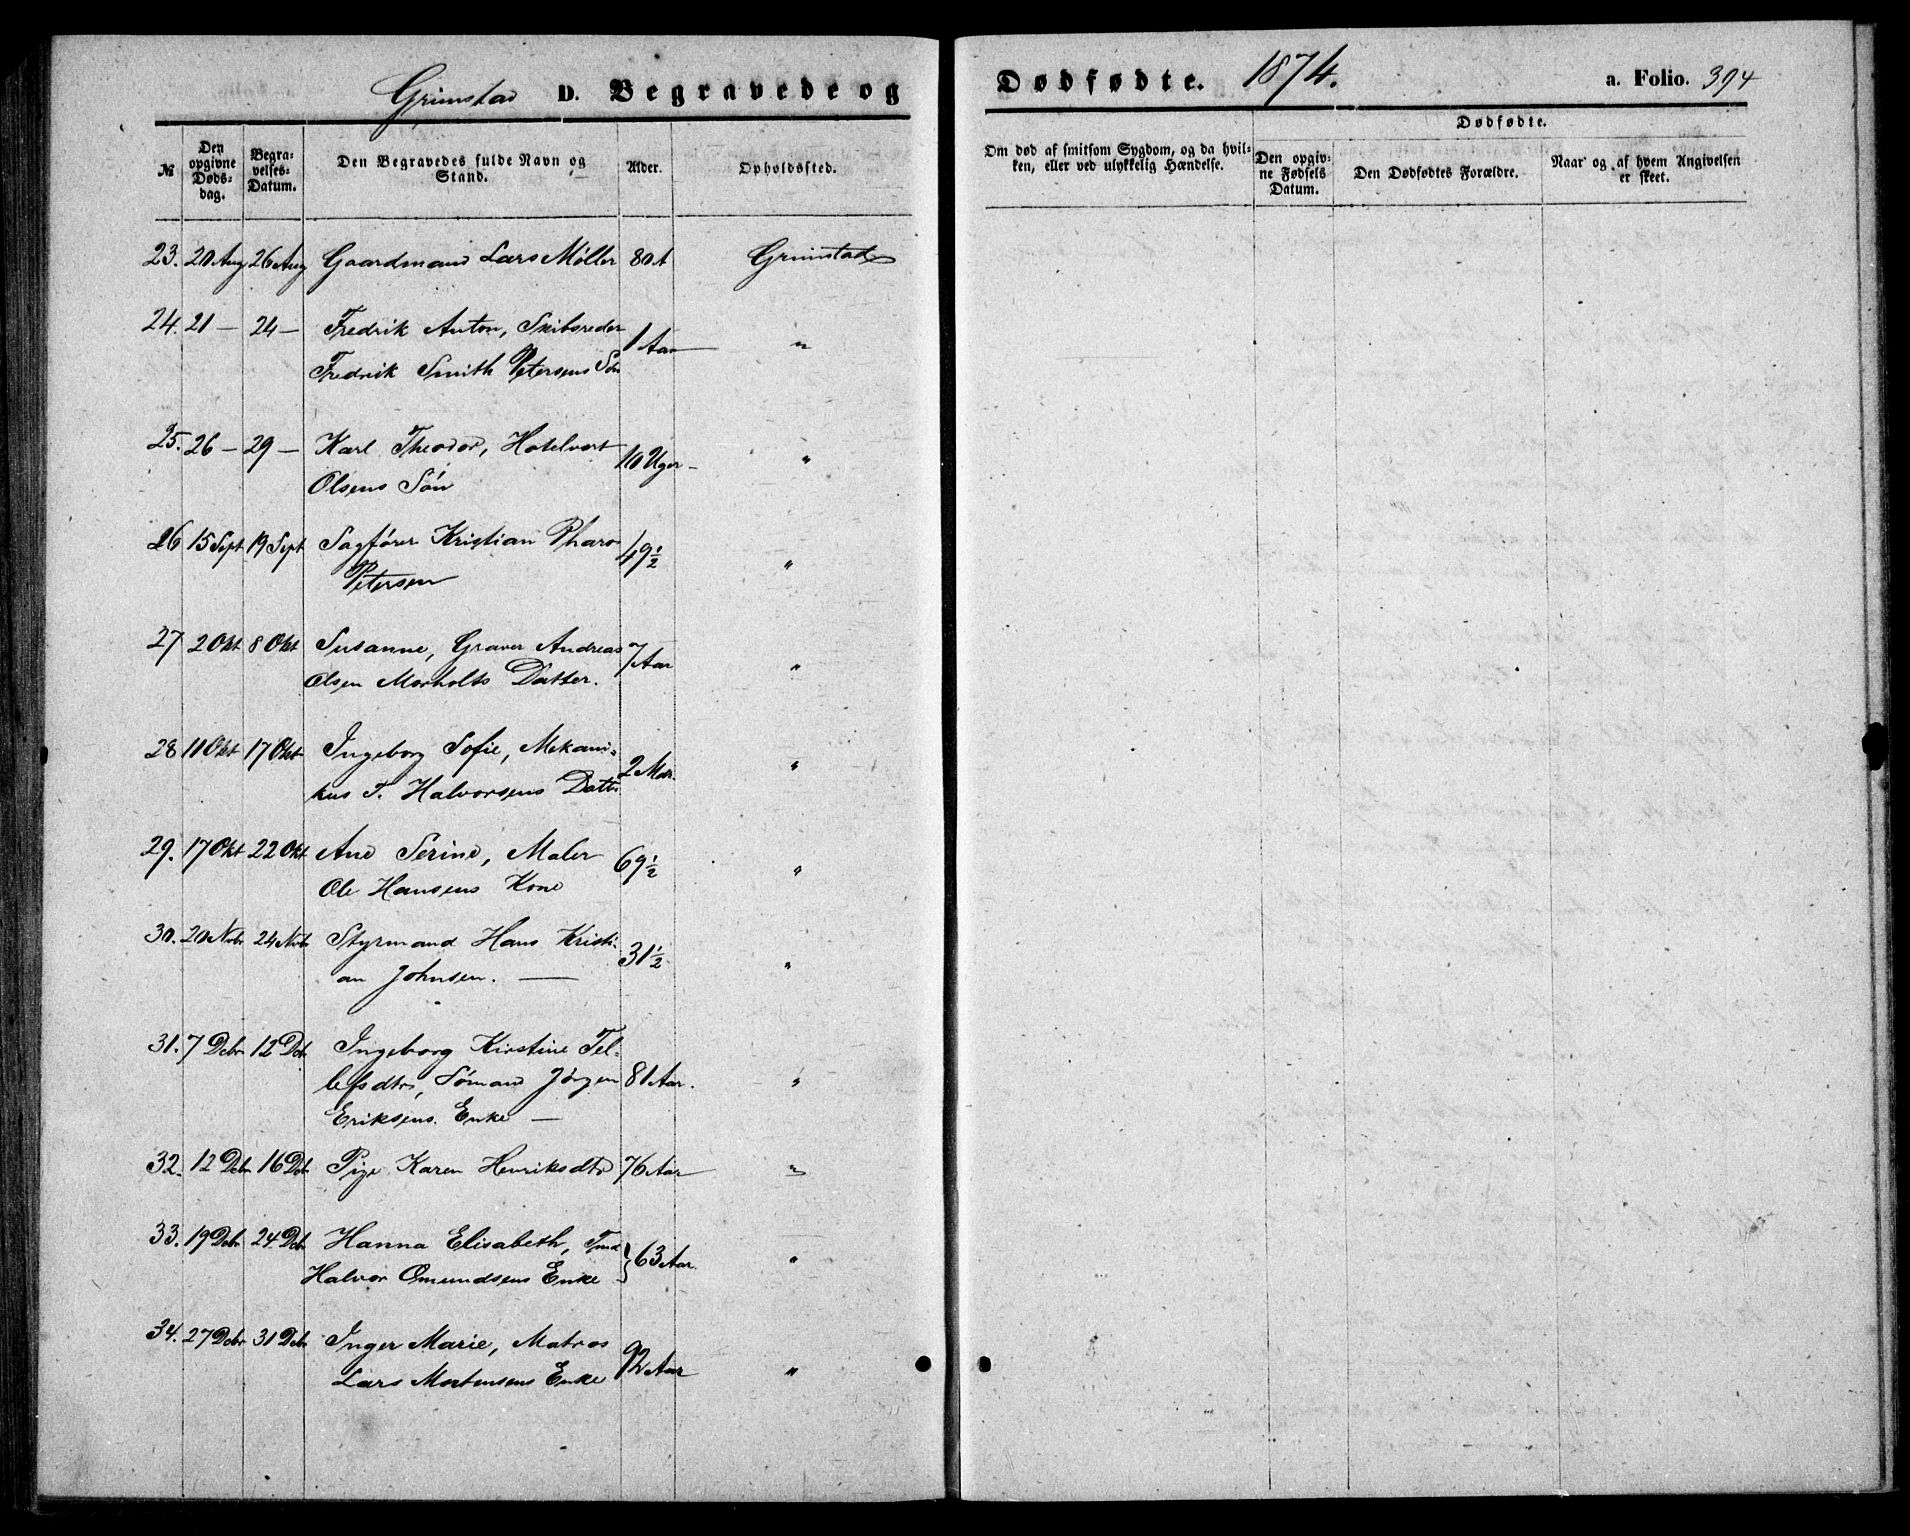 Grimstad D. Begravede og Dødfødte. 1874. a. Folio. 394
№
Den opgivne Dødsdag.
Begravelses-Datum.
Den Begravedes fulde Navn og Stand.
Alder.
Opholdssted.
Om død af smitsom Sygdom, og da hvilken, eller ved ulykkelig Hændelse.
Dødfødte.
Den opgivne Fødsels Datum.
Den Dødfødtes Forældre.
Naar og af hvem Angivelsen er skeet.
23. 20 Aug 26 Aug Gaardmand Lars Møller 80 A Grimstad
24. 21 — 24 — Fredrik Anton, Skibsreder 1 Aar "
Fredrik Smith Petersens Søn
25. 26 — 29 — Karl Theodor, Hotelvert 10 Uger "
Olsens Søn
26 15 Sept 19 Sept Sagfører Kristian Pharo 49 1/2 "
Petersen
27 2 Okt 8 Okt Susanne, Graver Andreas 7 Aar "
Olsen Morholts Datter.
28 11 Okt 17 Okt Ingeborg Sofie, Mekani- 2 Mdr. "
kus T. Halvorsens Datt.
29. 17 Okt 22 Okt Ane Serine, Maler 69 1/2 "
Ole Hansens Kone
30. 20 Novbr 24 Novbr Styrmand Hans Kristi- 31 1/2 "
an Johnsen. —
31. 7 Debr 12 Debr Ingeborg Kirstine Tel- 81 Aar. "
lefsdtr, Sømand Jørgen
Eriksens. Enke —
32. 12 Debr 16 Debr Pige Karen Henriksdtr 76 Aar "
33. 19 Debr 24 Debr Hanna Elisabeth, 63 Aar. "
Halvor Omundsens Enke
34. 27 Debr 31 Debr Inger Marie, Matros 92 Aar "
Lars Mortensens Enke